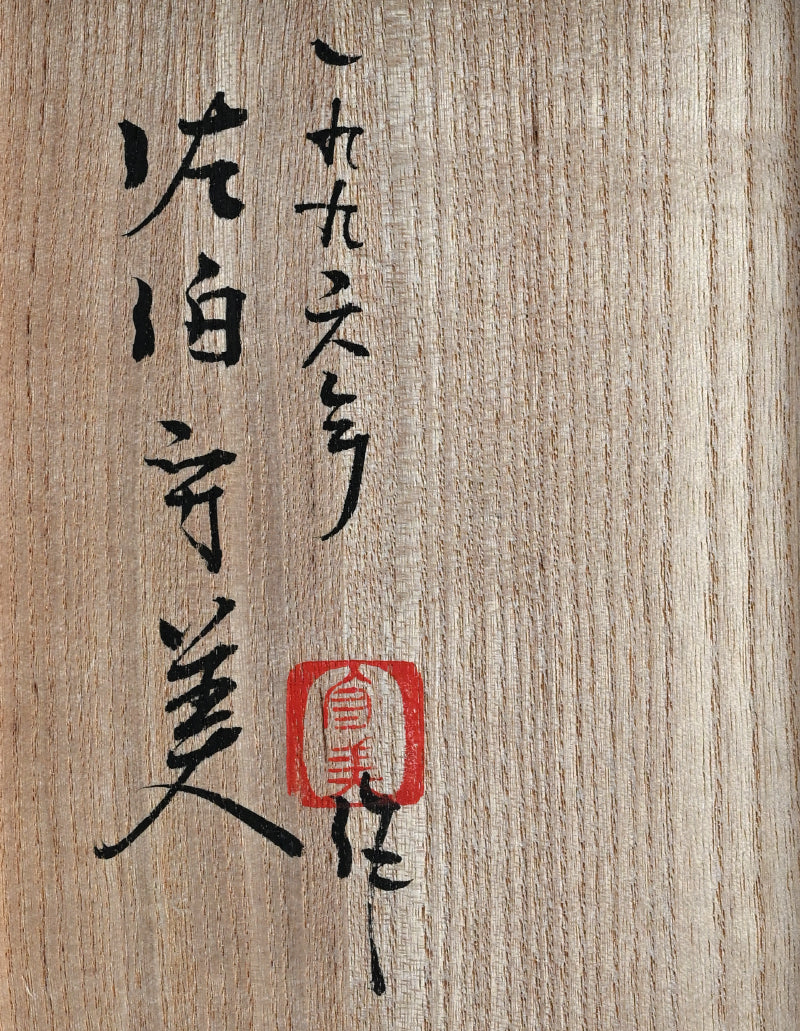 一九九六年
作
佐伯守美